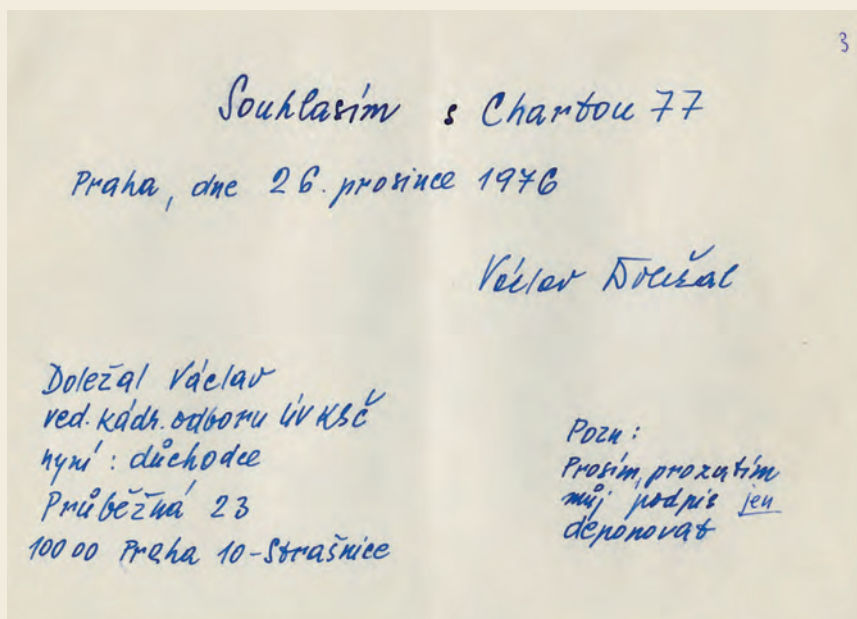 3
Souhlasím s Chartou 77
Praha, dne 26. prosince 1976
Václav Doležal
Doležal Václav
ved. kádr. odboru ÚV KSČ
nyní : důchodce
Průběžná 23
100 00 Praha 10-Strašnice
Pozn :
Prosím, prozatím
můj podpis jen
deponovat